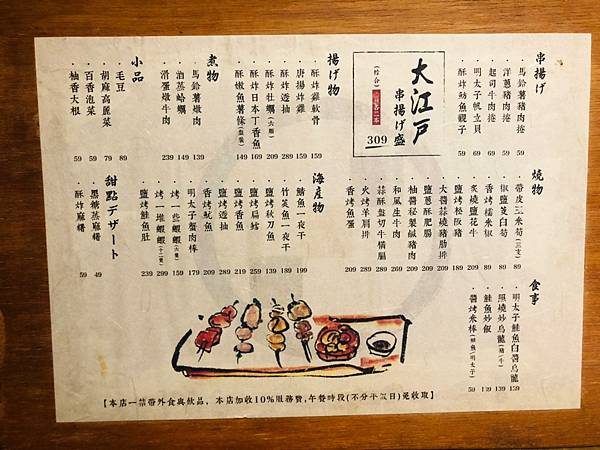 串揚げ
馬鈴薯豬肉捲 59
洋蔥豬肉捲 59
起司牛肉捲 69
明太子帆立貝 69
酥炸幼魚親子 69
大江戸
串揚げ盛
309
揚げ物
酥炸雞軟骨 159
唐揚炸雞 159
酥炸透抽 289
酥炸牡蠣(六顆) 209
酥炸日本丁香魚 169
酥嫩魚薯條(盤裝) 149
煮物
馬鈴薯燉肉 139
酒蒸蛤蠣 149
滑蛋燉牛肉 239
小品
毛豆 89
胡麻高麗菜 79
百香泡菜 59
柚香大根 59
燒物
帶皮玉米筍(三支) 89
椒鹽茭白筍 89
香烤糯米椒 89
炙燒鹽花牛 209
鹽烤松阪豬 189
大醬蒜燒豬肋排 209
鹽蔥酥肥腸 209
柚醬秘製鹹豬肉 209
和風生牛肉 209
蒜酥盤切牛橫膈 289
火烤羊肩排 289
香烤魚蛋 209
海産物
鯖魚一夜干 199
竹筴魚一夜干 189
鹽烤秋刀魚 139
鹽烤扁鱈 259
鹽烤香魚 219
鹽烤透抽 289
香烤魷魚 209
明太子蟹肉棒 179
烤一些蝦蝦(六隻) 159
烤一堆蝦蝦(十二隻) 299
鹽烤鮭魚肚 239
甜點デザート
黑糖蒸麻糬 49
酥炸麻糬 59
食事
明太子鮭魚白醬烏龍 159
照燒炒烏龍(豬/牛) 139
鮭魚炒飯 139
醬烤米棒(鮭魚/明太子) 59
【本店一禁帶外食與飲品，本店加收10%服務費,午餐時段(不分平假日)免收取】